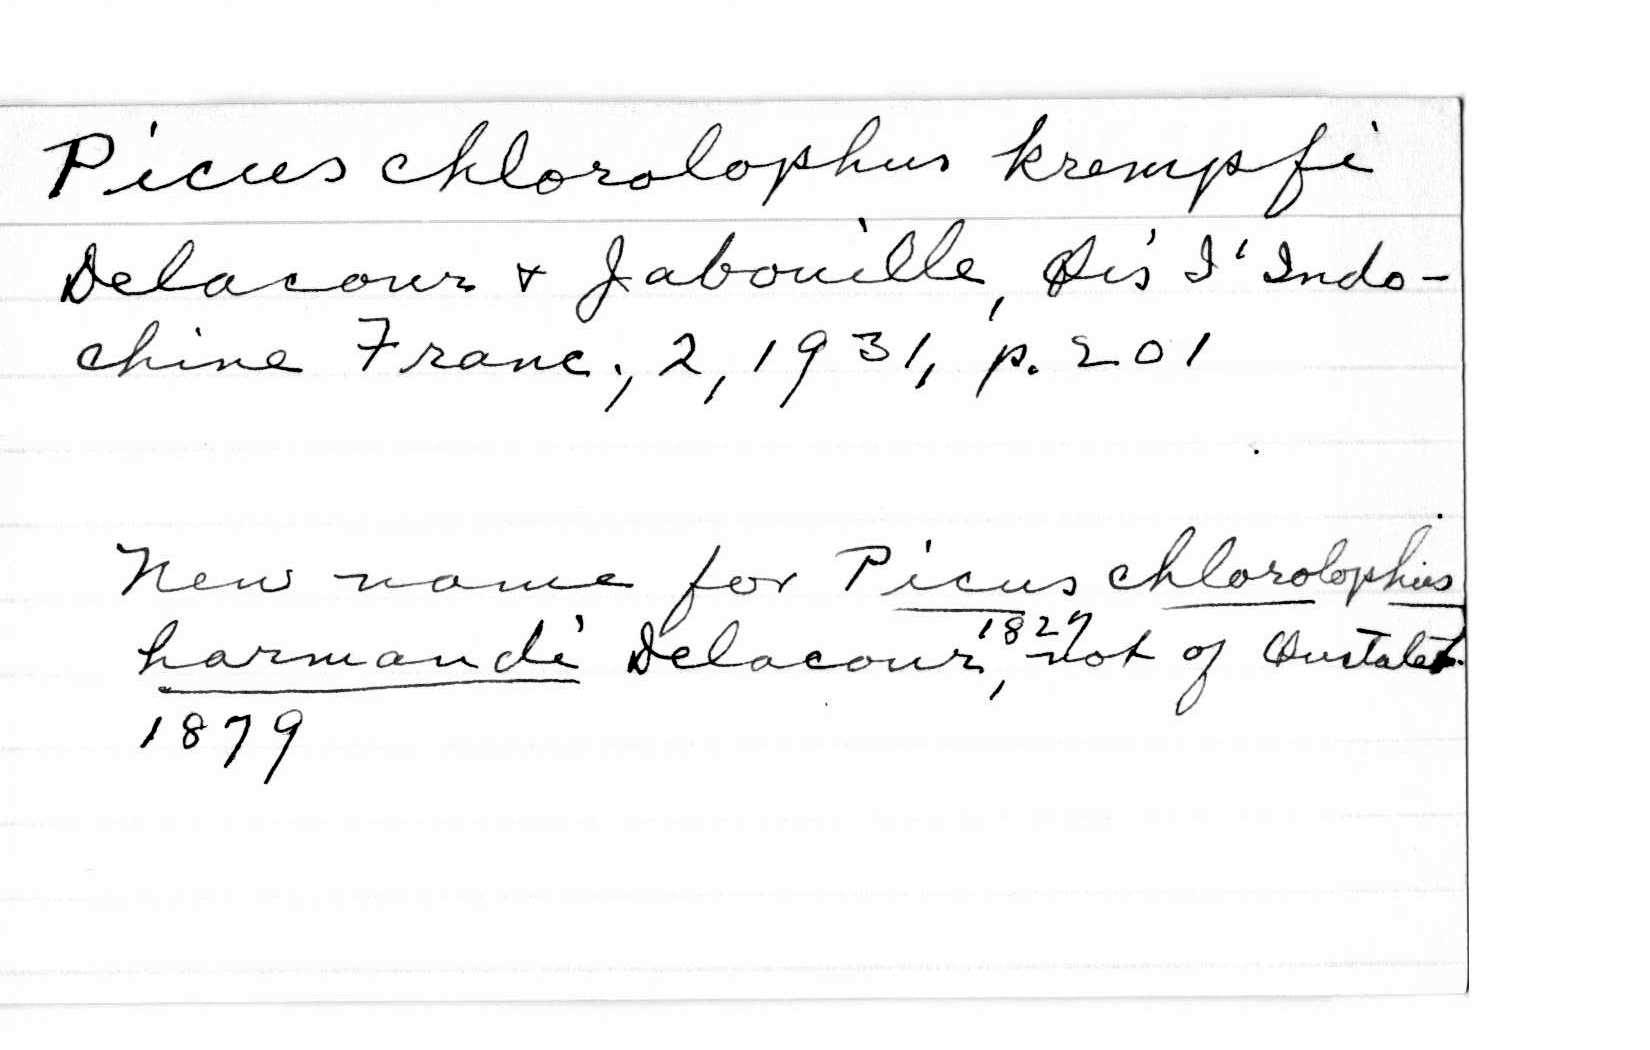 Picus chlorolophus krempfi
Delacour & Jabouille, Ois I' Indo-
chine Franc., 2, 1931, p. 201
New name for Picus chlorolophus
1827
harmandi Delacour, not of Oustalet
1879